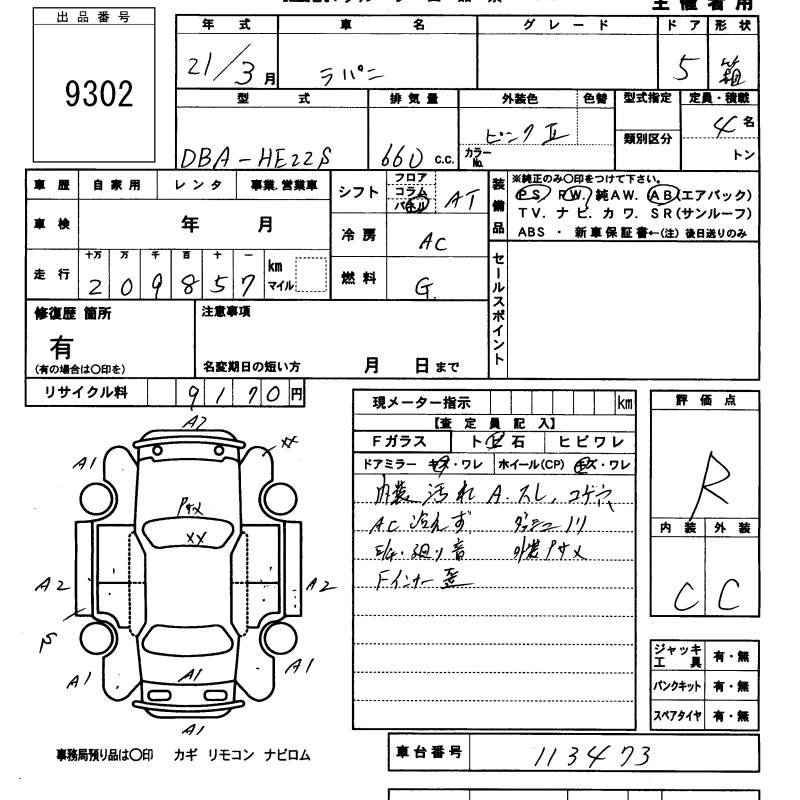 主催者用
出品番号
9302
年式 車名 グレード ドア 形状
21/3月 ラパン 5 箱
型式 排気量 外装色 色替 型式指定 定員・積載
DBA-HE22S 660 C.C. ピンクⅡ カラーNo. 類別区分 4名 トン
車歴 自家用 レンタ 事業.営業車
シフト フロア コラム パネル AT
装備品
※純正のみ〇印をつけて下さい。
PS PW. 純AW. AB(エアバック)
TV. ナビ. カワ. SR(サンルーフ)
ABS ・ 新車保証書←(注)後日送りのみ
車検 年 月
冷房 AC
走行 十万 万 千 百 十 一 km マイル
2 0 9 8 5 7
燃料 G.
セールスポイント
修復歴 箇所
有
(有の場合は〇印を)
注意事項
名変期日の短い方 月 日まで
リサイクル料 9170円
現メーター指示 km
【査定員記入】
Fガラス ト 石 ヒビワレ
ドアミラー キズ・ワレ ホイール(CP) キズ・ワレ
内装 汚れ A.スレ、コゲ穴
AC 冷えず
E/g.廻り音 外装Pサメ
Fインナー
評価点
R
内装 外装
C C
A2
A1
Pサメ
XX
A2
A2
S
A1
A1
A1
A1
ジャッキ工具 有・無
パンクキット 有・無
スペアタイヤ 有・無
事務局預り品は〇印 カギ リモコン ナビロム
車台番号 113473